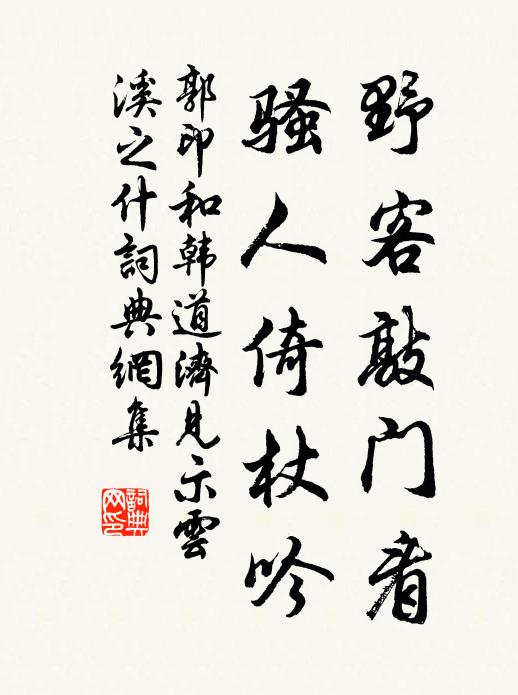 野客敲门看
骚人倚杖吟
郭印和韩道濟見示雲
溪之什詞典網集
詞典网印